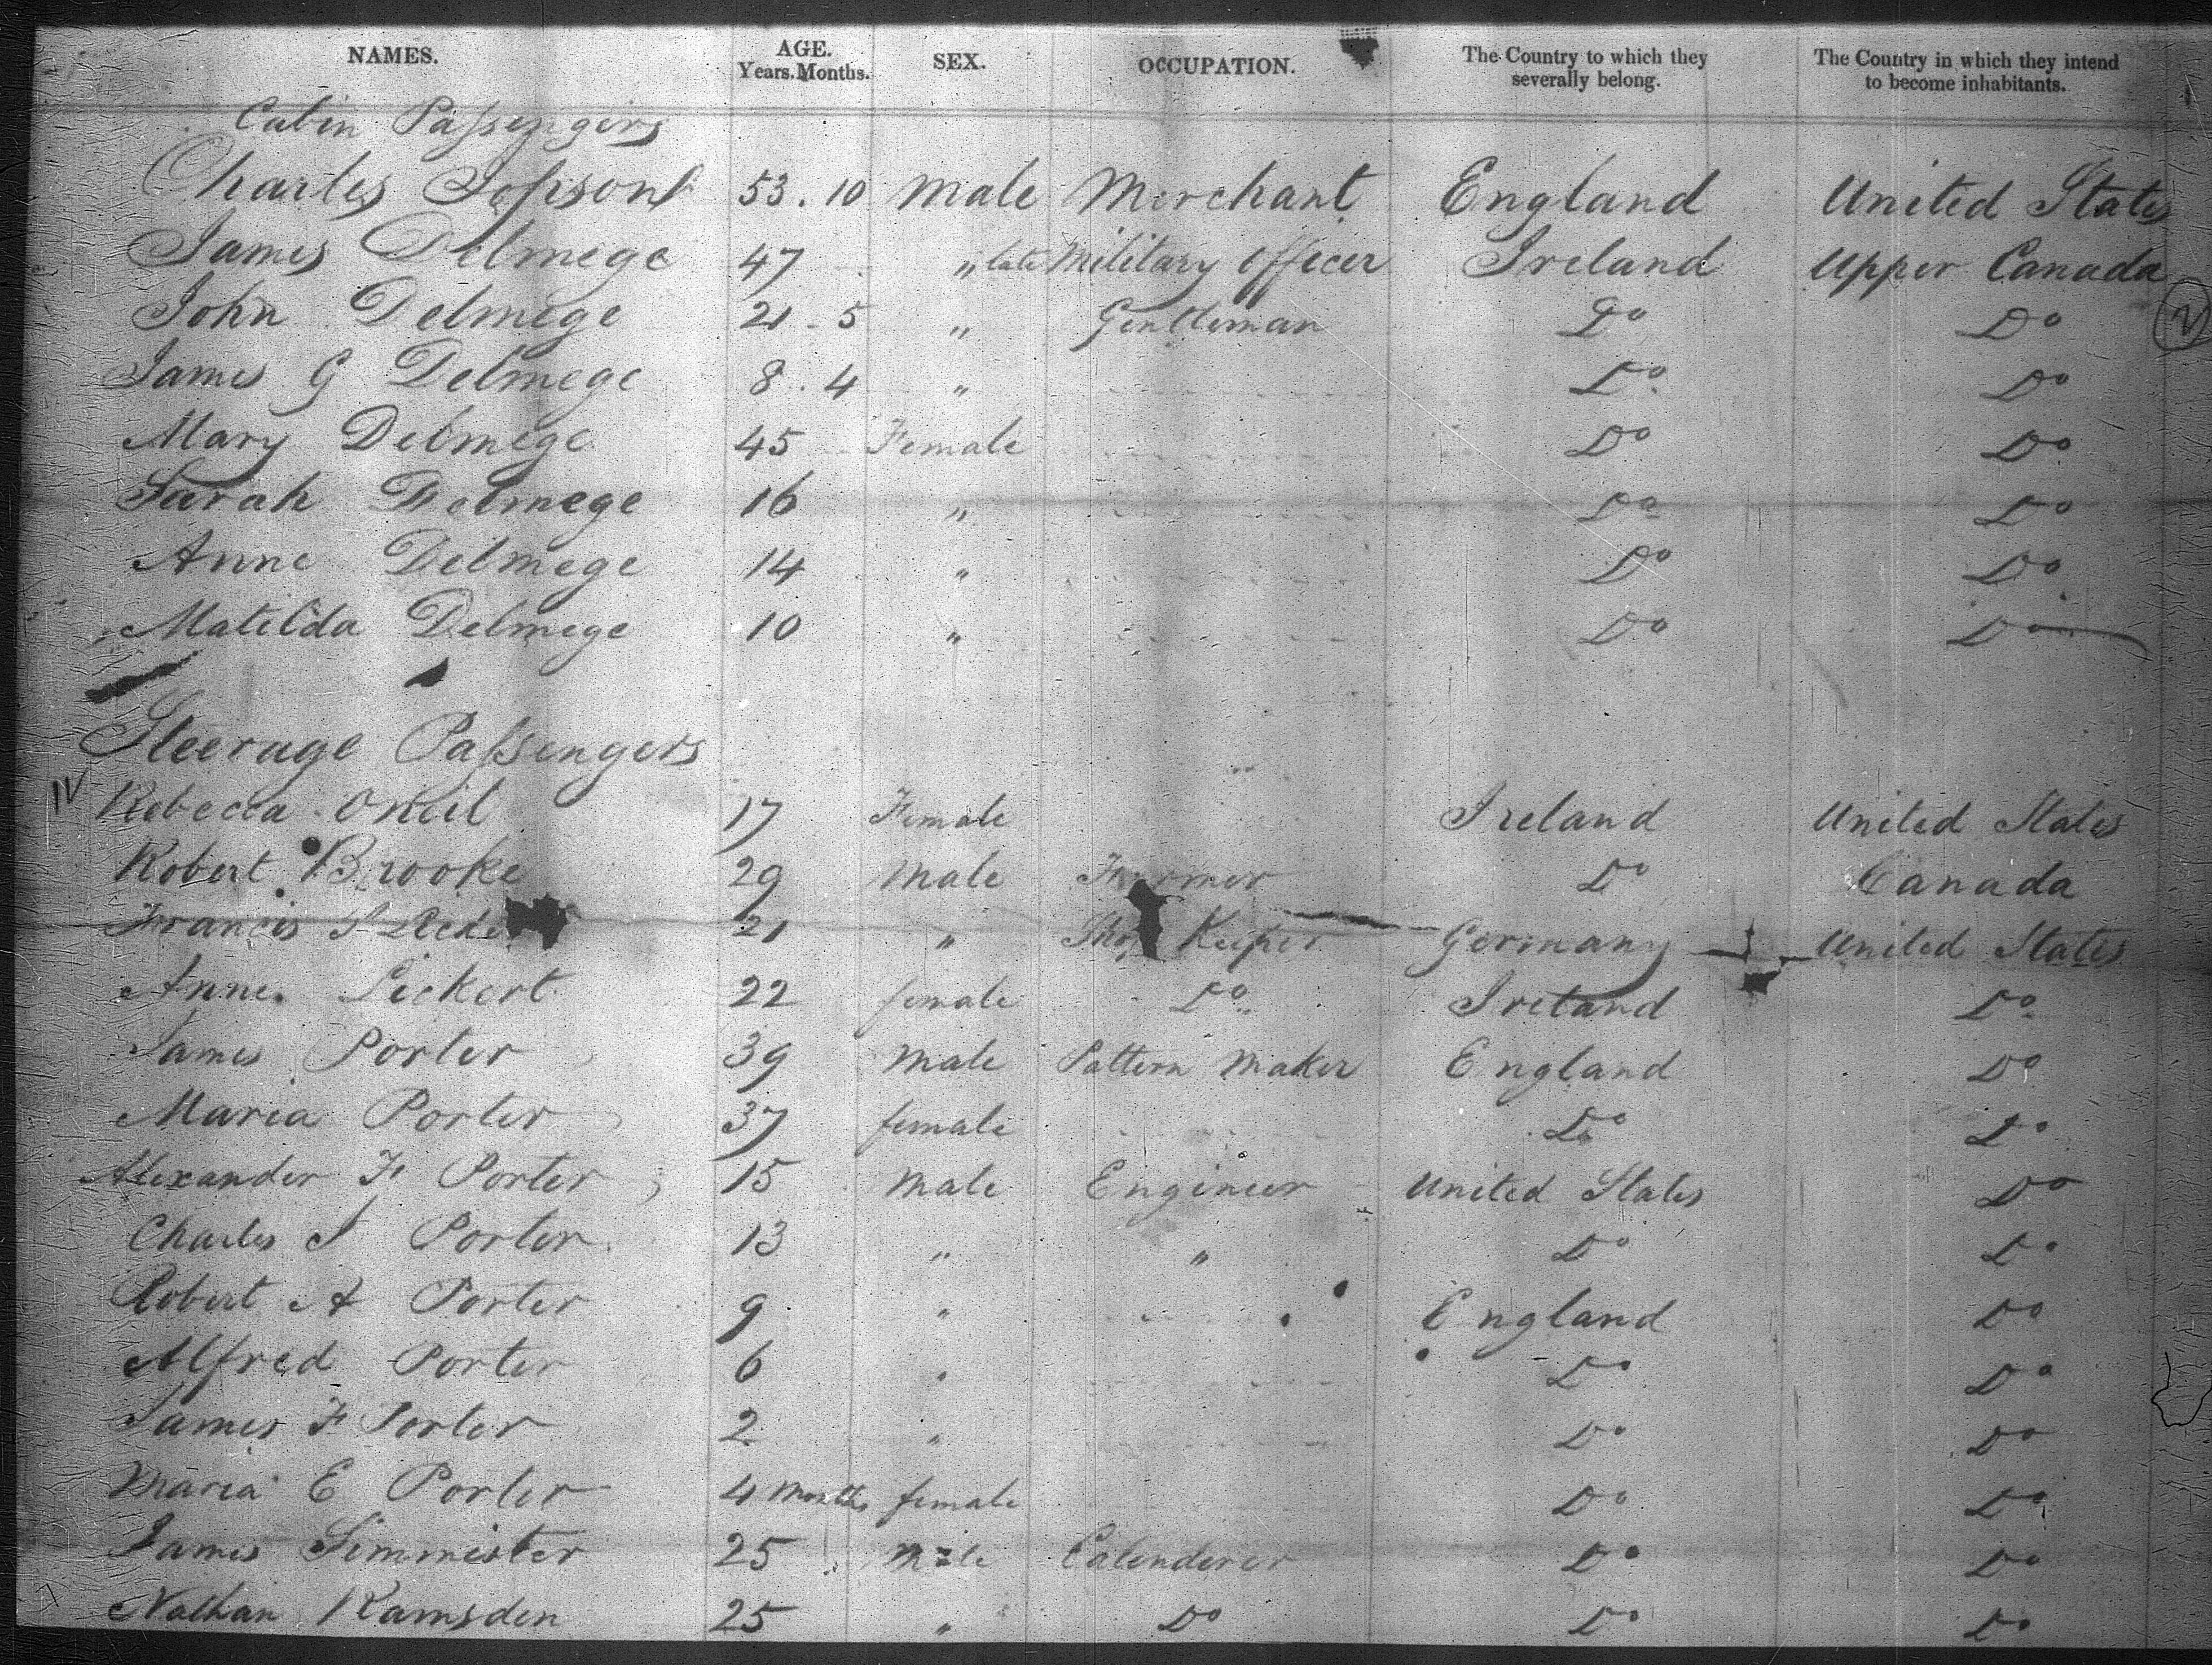 NAMES. AGE. Years. Months. SEX. OCCUPATION. The Country to which they severally belong. The Country in which they intend to become inhabitants.
Cabin Passengers
Charles 53 . 10 Male Merchant England United States
James Delmege 47 „ late Military Officer Ireland Upper Canada
John Delmege 21 - 5 „ Gentleman Do Do
James G Delmege 8 . 4 „ Do Do
Mary Delmege 45 Female Do Do
Sarah Delmege 16 „ Do Do
Anne Delmege 14 „ Do Do
Matilda Delmege 10 „ Do Do
Steerage Passengers
Rebecca ONeil 17 Female Ireland United States
Robert Brooke 29 Male Farmer Do Canada
Francis 21 „ Shop Keeper Germany United States
Anne Lickert 22 female Do Ireland Do
James Porter 39 Male Pattern Maker England Do
Maria Porter 37 female Do Do
Alexander F Porter 15 Male Engineer United States Do
Charles J Porter 13 „ „ Do Do
Robert A Porter 9 „ England Do
Alfred Porter 6 „ Do Do
James F Porter 2 „ Do Do
Maria E Porter 4 Months female Do Do
James Simmister 25 Male Calenderer Do Do
Nathan Ramsden 25 „ Do Do Do